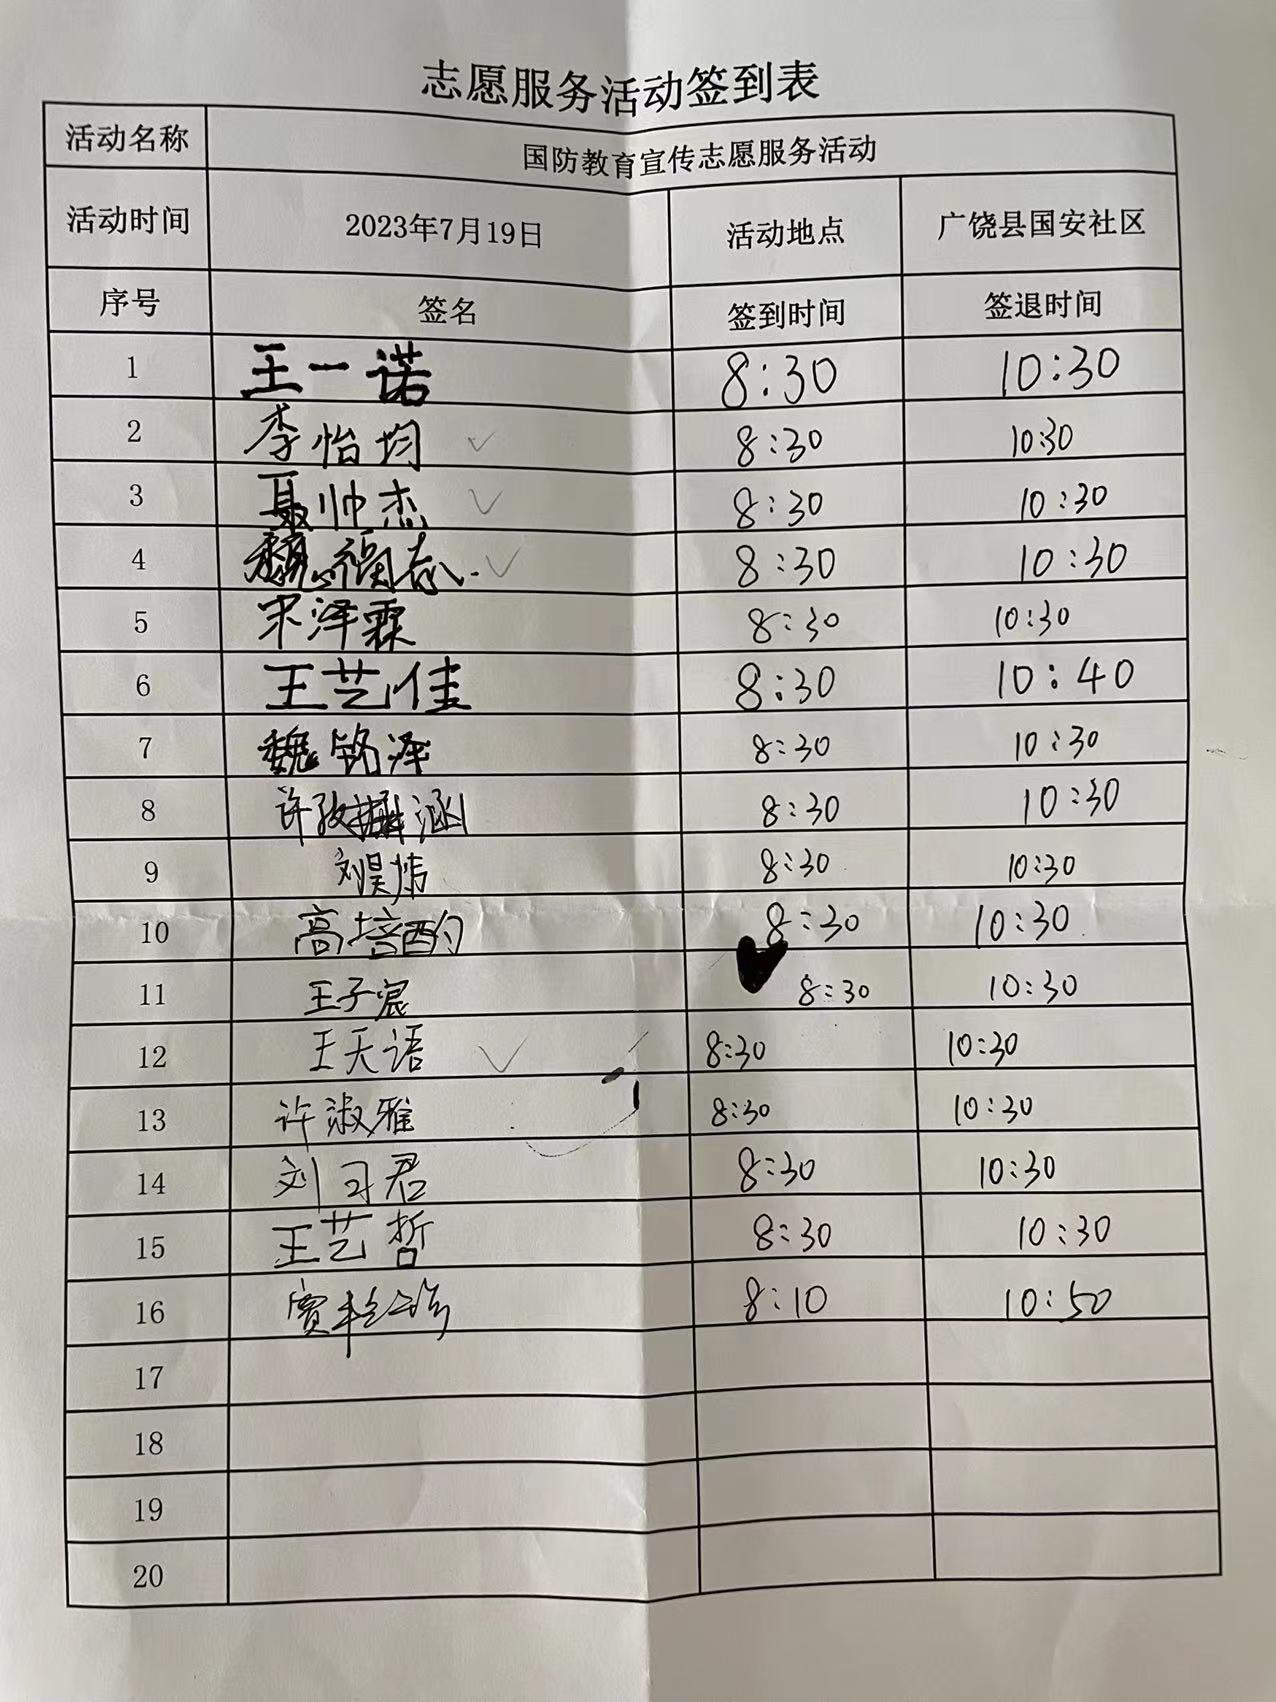 志愿服务活动签到表
活动名称 国防教育宣传志愿服务活动
活动时间 2023年7月19日 活动地点 广饶县国安社区
序号 签名 签到时间 签退时间
1 王一诺 8:30 10:30
2 李怡均 8:30 10:30
3 聂帅杰 8:30 10:30
4 魏福志 8:30 10:30
5 宋泽霖 8:30 10:30
6 王艺佳 8:30 10:40
7 魏铭泽 8:30 10:30
8 许涵 8:30 10:30
9 刘昊炜 8:30 10:30
10 高培酌 8:30 10:30
11 王子宸 8:30 10:30
12 王天语 8:30 10:30
13 许淑雅 8:30 10:30
14 刘习君 8:30 10:30
15 王艺哲 8:30 10:30
16 8:10 10:50
17
18
19
20